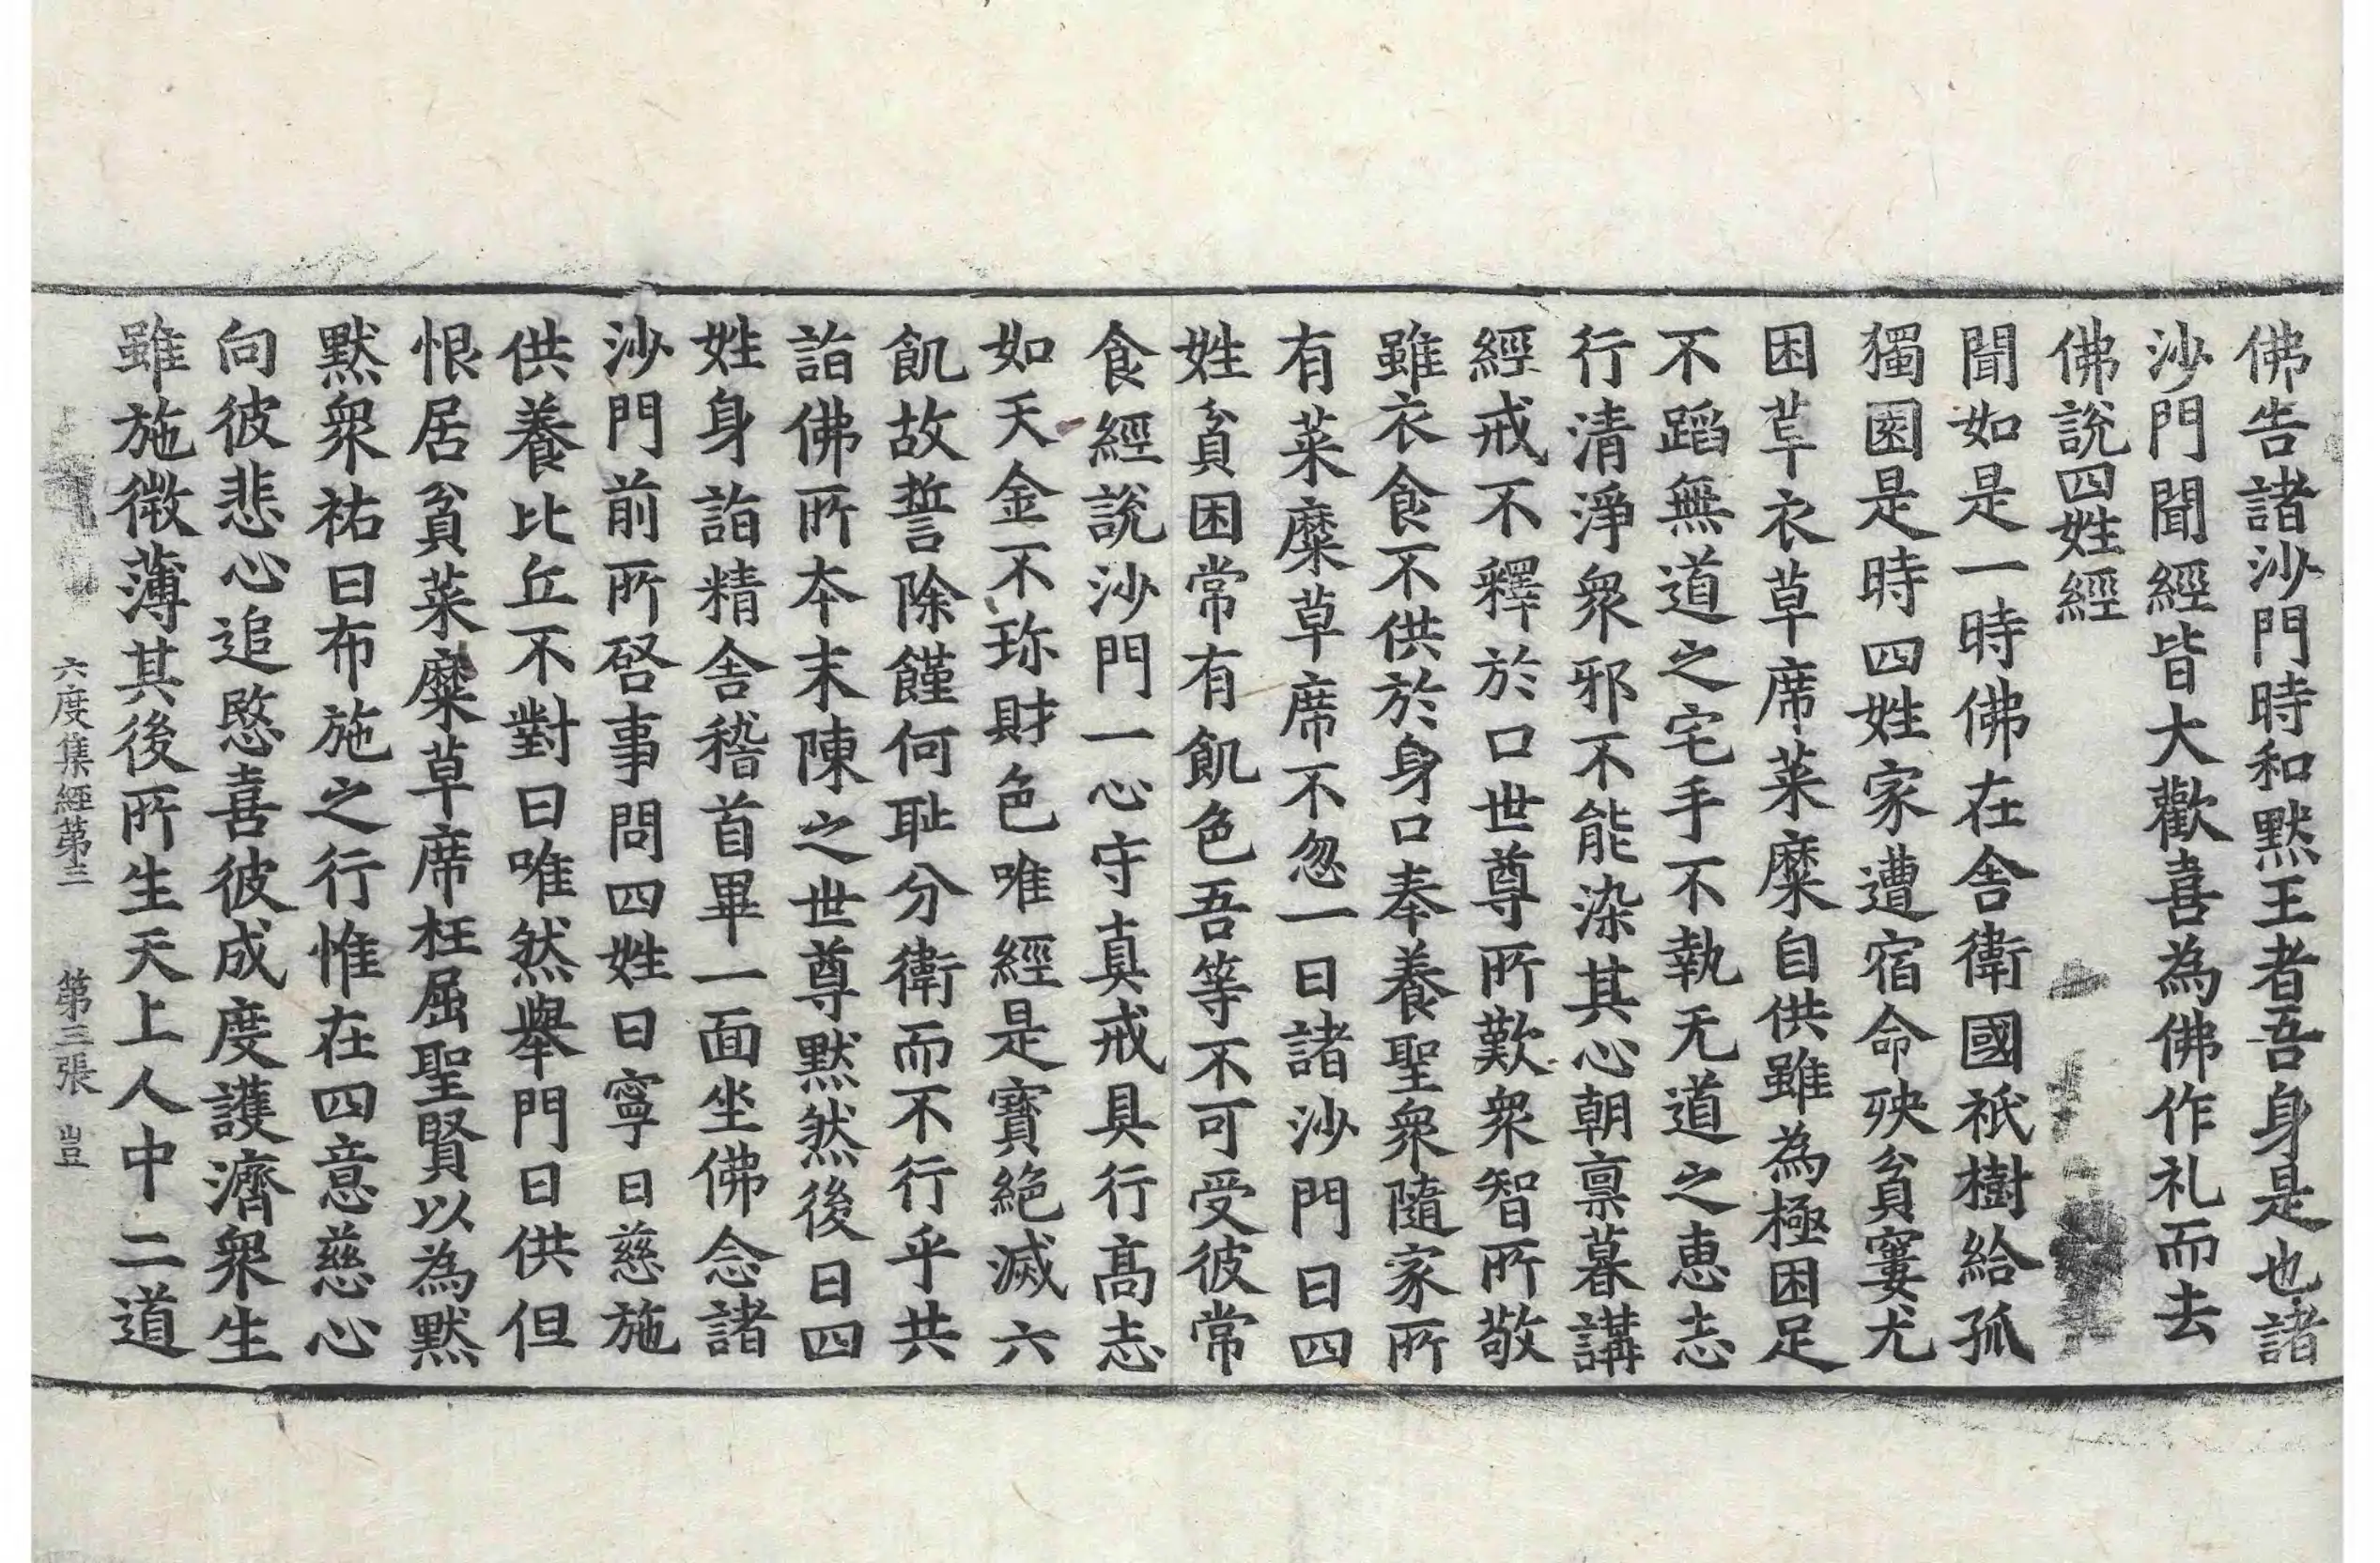 佛告諸沙門時和默王者吾身是也諸
沙門聞經皆大歡喜為佛作礼而去
佛說四姓經
聞如是一時佛在舍衛國祇樹給孤
獨園是時四姓家遭宿命殃貧窶尤
困草衣草席菜糜自供雖為極困足
不蹈無道之宅手不執无道之惠志
行清淨衆邪不能染其心朝稟暮講
經戒不釋於口世尊所歎衆智所敬
雖衣食不供於身口奉養聖衆隨家所
有菜糜草席不忽一日諸沙門曰四
姓貧困常有飢色吾等不可受彼常
食經說沙門一心守真戒具行高志
如天金不珎財色唯經是寶絕滅六
飢故誓除饉何恥分衛而不行乎共
詣佛所本末陳之世尊默然後日四
姓身詣精舍稽首畢一面坐佛念諸
沙門前所啓事問四姓曰寧日慈施
供養比丘不對曰唯然舉門日供但
恨居貧菜糜草席枉屈聖賢以為默
默衆祐曰布施之行惟在四意慈心
向彼悲心追愍喜彼成度護濟衆生
雖施微薄其後所生天上人中二道
六度集經第三 第三張 豈